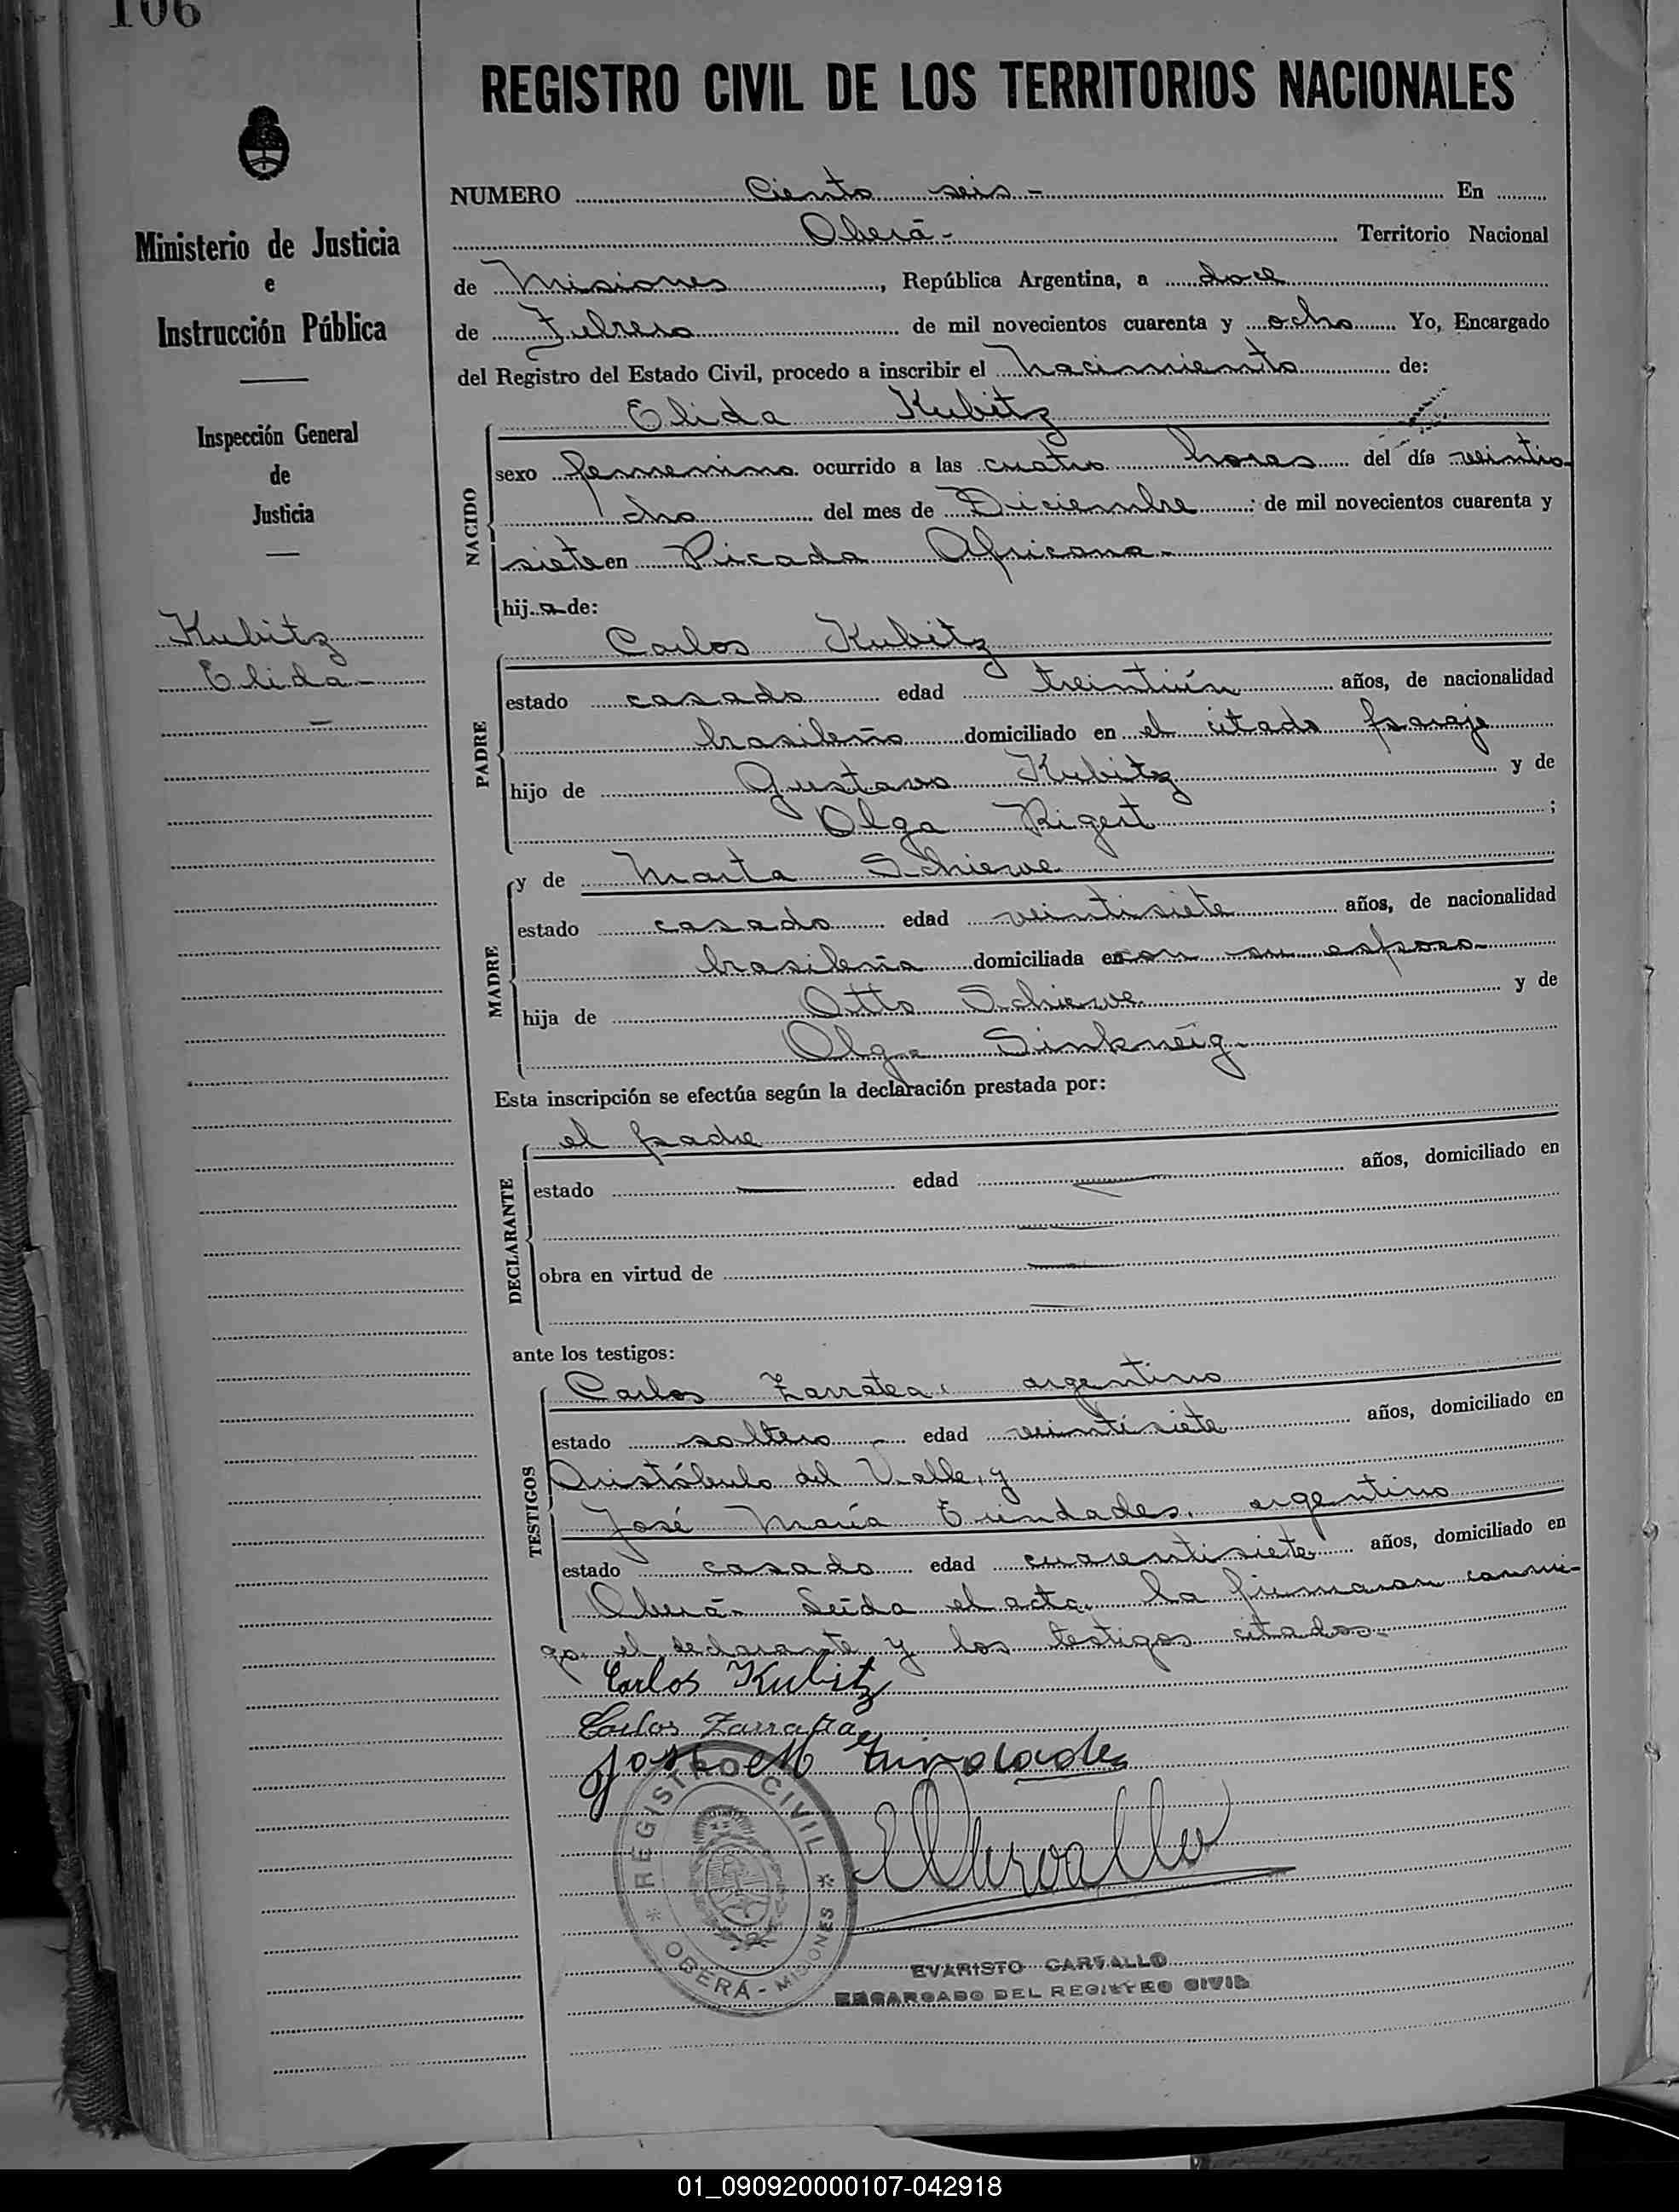 106
REGISTRO CIVIL DE LOS TERRITORIOS NACIONALES
Ministerio de Justicia
e
Instrucción Pública
Inspección General
de
Justicia
Kubitz
Elida-
NUMERO Ciento seis- En
Oberá- Territorio Nacional
de Misiones, República Argentina, a doce
de Febrero de mil novecientos cuarenta y ocho Yo, Encargado
del Registro del Estado Civil, procedo a inscribir el nacimiento de:
Elida Kubitz
NACIDO
sexo femenino ocurrido a las cuatro horas del día veintio-
cho del mes de Diciembre de mil novecientos cuarenta y
siete en Picada Africana-
hija de:
Carlos Kubitz
PADRE
estado casado edad treintiún años, de nacionalidad
brasileño domiciliado en el citado paraje
hijo de Gustavo Kubitz y de
Olga Rigert;
y de Marta Schiewe
MADRE
estado casado edad veintisiete años, de nacionalidad
brasileña domiciliada con su esposo-
hija de Otto Schiewe y de
Olga Sinkneig-
Esta inscripción se efectúa según la declaración prestada por:
el padre
DECLARANTE
estado — edad — años, domiciliado en
obra en virtud de —
ante los testigos:
Carlos Zarratea, argentino
TESTIGOS
estado soltero - edad veintisiete años, domiciliado en
Aristóbulo del Valle, y
José María argentino
estado casado edad cuarentisiete años, domiciliado en
Oberá- Leída el acta, la firmaron conmi-
go el declarante y los testigos citados-
Carlos Kubitz
Carlos Zarratea
José M
REGISTRO CIVIL
OBERÁ - MISIONES
EVARISTO CARVALLO
ENCARGADO DEL REGISTRO CIVIL
01_090920000107-042918